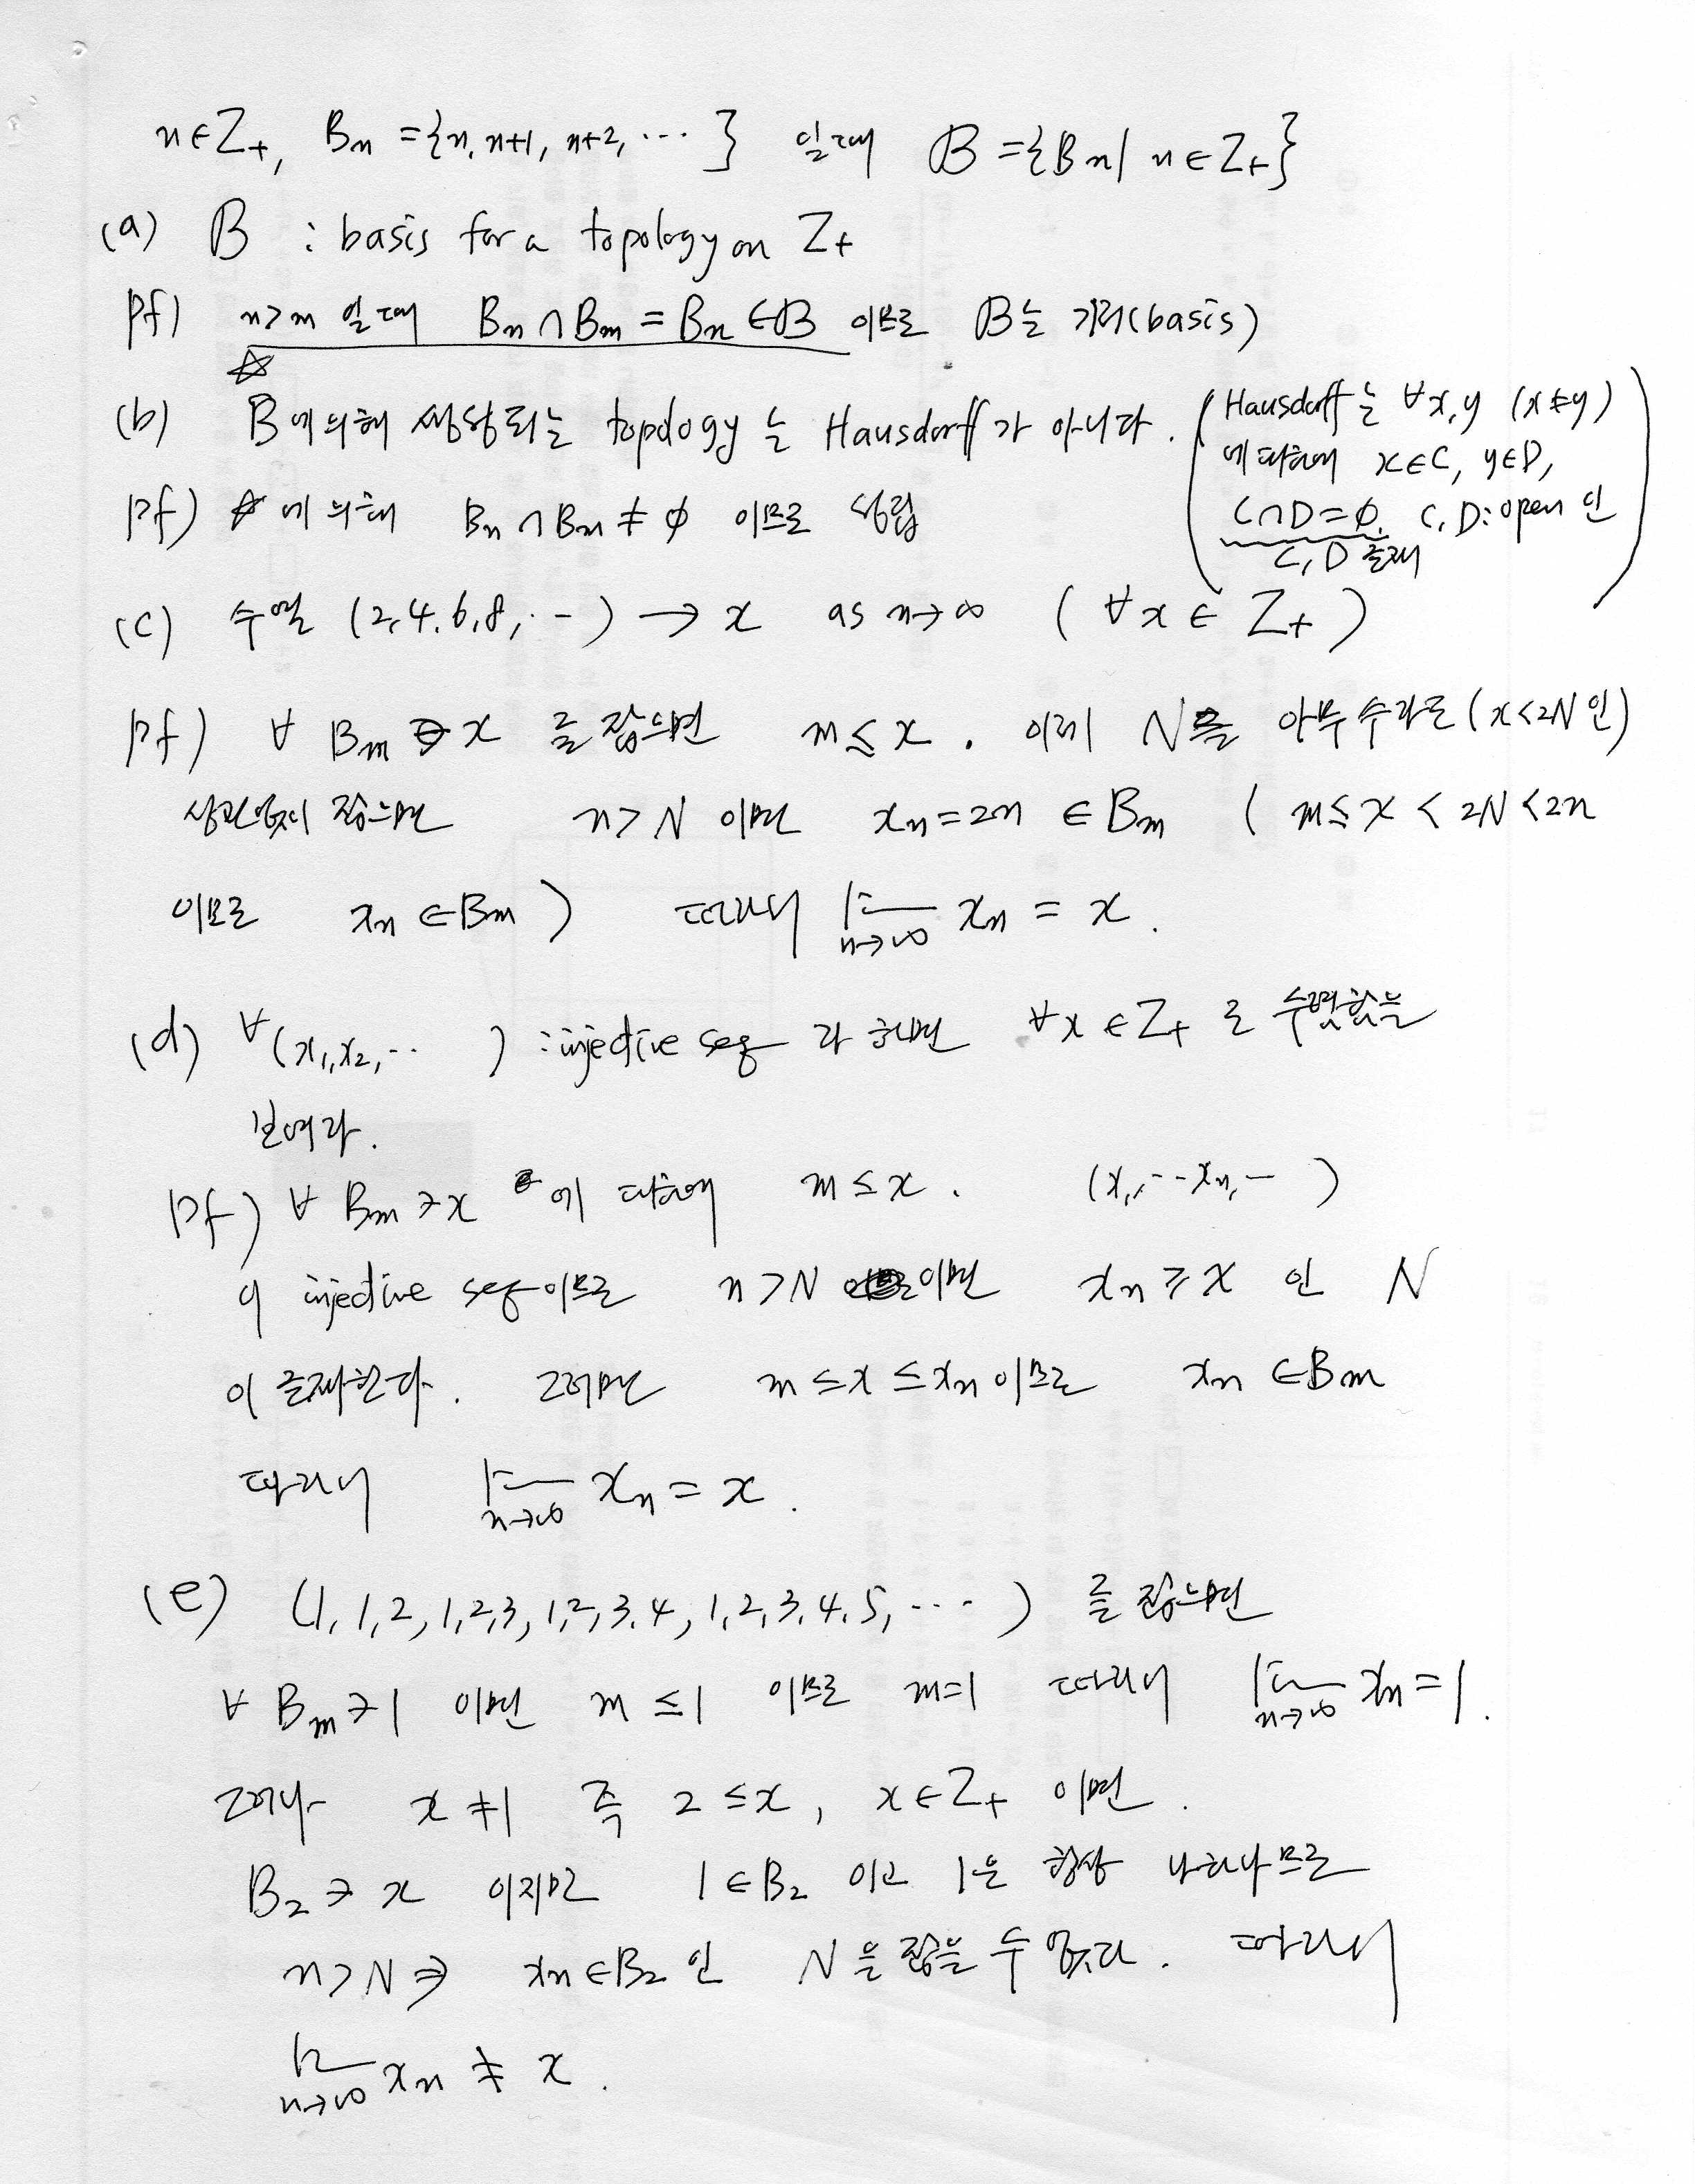 n∈Z₊, Bn = {n, n+1, n+2, ⋯ } 일 때 B = {Bn | n∈Z₊}
(a) B : basis for a topology on Z₊
pf) n>m 일 때 Bn ∩ Bm = Bn ∈ B 이므로 B는 기저(basis)
☆
(b) B에 의해 생성되는 topology는 Hausdorff가 아니다.
(Hausdorff는 ∀x,y (x≠y)
에 대하여 x∈C, y∈D,
C∩D=∅, C, D: open 인
C, D 존재)
pf) ☆에 의해 Bn ∩ Bm ≠ ∅ 이므로 성립
(c) 수열 (2,4,6,8,⋯) → x as n→∞ (∀x ∈ Z₊)
pf) ∀ Bm ∋ x 를 잡으면 m ≤ x. 이제 N을 아무 수라도 (x<2N 인)
상관없이 잡으면 n>N 이면 xn=2n ∈ Bm ( m≤x<2N<2n
이므로 xn ∈ Bm ) 따라서 lim n→∞ xn = x.
(d) ∀(x₁,x₂,⋯ ) : injective seq 라 하면 ∀x∈Z₊ 로 수렴함을
보여라.
pf) ∀ Bm ∋ x 에 대하여 m ≤ x. (x₁,⋯xn,⋯ )
이 injective seq이므로 n>N 이면 xn ≥ x 인 N
이 존재한다. 그러면 m ≤ x ≤ xn 이므로 xn ∈ Bm
따라서 lim n→∞ xn = x.
(e) (1,1,2,1,2,3,1,2,3,4,1,2,3,4,5,⋯ ) 를 잡으면
∀ Bm ∋ 1 이면 m ≤ 1 이므로 m=1 따라서 lim n→∞ xn = 1.
그러나 x ≠ 1 즉 2 ≤ x, x∈Z₊ 이면.
B₂ ∋ x 이지만 1 ∈ B₂ 이고 1은 항상 나타나므로
n>N ⇒ xn∈B₂ 인 N을 잡을 수 없다. 따라서
lim n→∞ xn ≠ x.